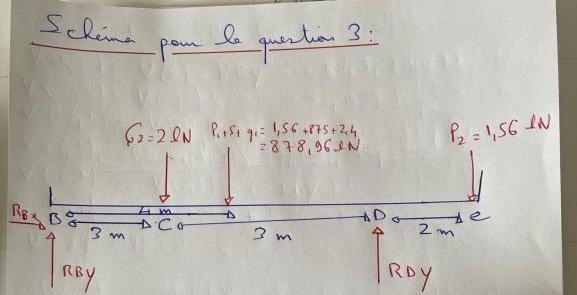 Schéma pour la question 3 :
G2 = 2 kN P1+S+ q1 = 1,56 +875+2,4
= 878,96 kN
P2 = 1,56 kN
RBx B 4 m C D e
3 m 3 m 2 m
RBY RDY